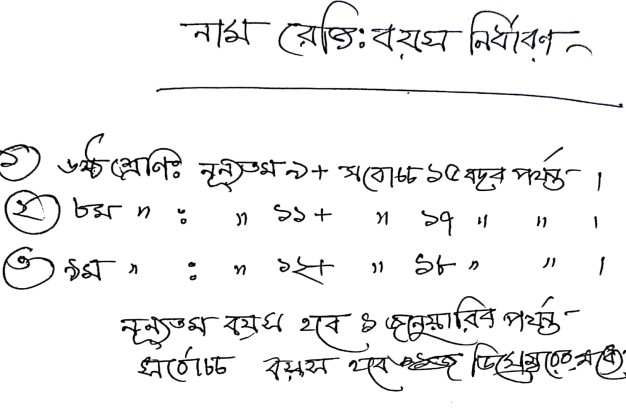 নাম রেজিঃ বয়স নির্ধারণ
১) ৬ষ্ঠ শ্রেণিঃ নূন্যতম ৯+ সর্বোচ্চ ১৫ বছর পর্যন্ত।
২) ৮ম " : " ১১+ " ১৭ " " ।
৩) ৯ম " : " ১২+ " ১৮ " " ।
নূন্যতম বয়স হবে ১ জানুয়ারির পর্যন্ত
সর্বোচ্চ বয়স হবে ডিসেম্বরের মধ্যে